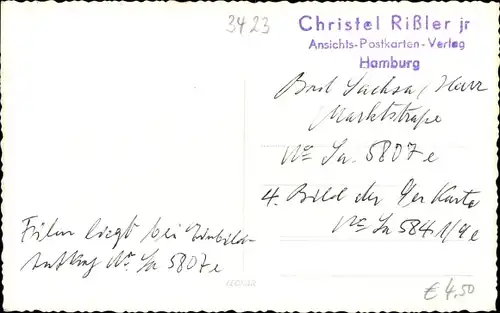 3423
Christel Rißler jr
Ansichts-Postkarten-Verlag
Hamburg
Bad Sachsa/Harz
Marktstraße
No Sa. 5807e
4. Bild der 4er Karte
No Sa 5841/4e
Film liegt bei Einbild-
Auftrag No Sa 5807e
€ 4,50